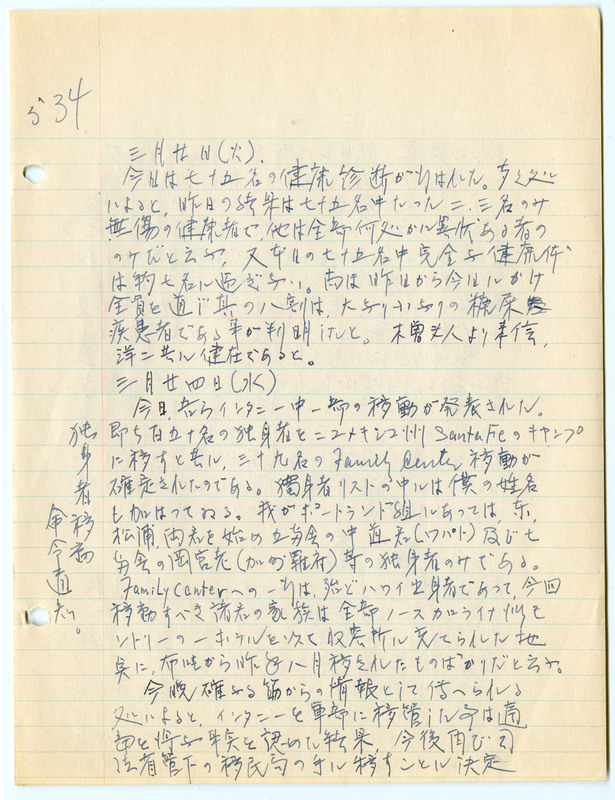 534
三月廿日(火)
今日は七十五名の健康診断が行はれた。多々処
によると、昨日の結果は七十五名中たった二、三名のみ
無傷の健康者で、他は全部何処かに異状ある者の
のみだと云ふ。又本日の七十五名中完全な健康体
は約七名に過ぎない。尚は昨日から今日にかけ
全員を通じ其の八割は、大なり小なりの糖尿
疾患者である事が判明したと。木曽夫人より来信、
洋二共に健在であると。
三月廿四日(水)
今日、吾らインタニー中一部の移動が発表された。
即ち百五十名の独身者をニューメキシコ州SantaFeのキャンプ
に移すと共に、三十九名のFamily Center移動が
確定されたのである。獨身者リストの中には僕の姓名
も加はってゐる。我がポートランド組にあっては、東、
松浦、両君を始め立労会の中道君(ワパト)及び七
労会の岡宮老(加州羅府)等の独身者のみである。
Family Centerへの一行は、殆どハワイ出身者であって、今回
移動すべき諸君の家族は全部ノースカロライナ州モ
ントリーのホテルを以て収容所に充てられた地
点に、布哇から昨年八月移されたものばかりだと云ふ。
今晩確かな筋からの情報として傳へられる
処によると、インタニーを軍部に移管した事は適
当を得ぬ事実と認めた結果、今後再び司
法省管下の移民局の手に移すことに決定
独身者移動
命令通知。